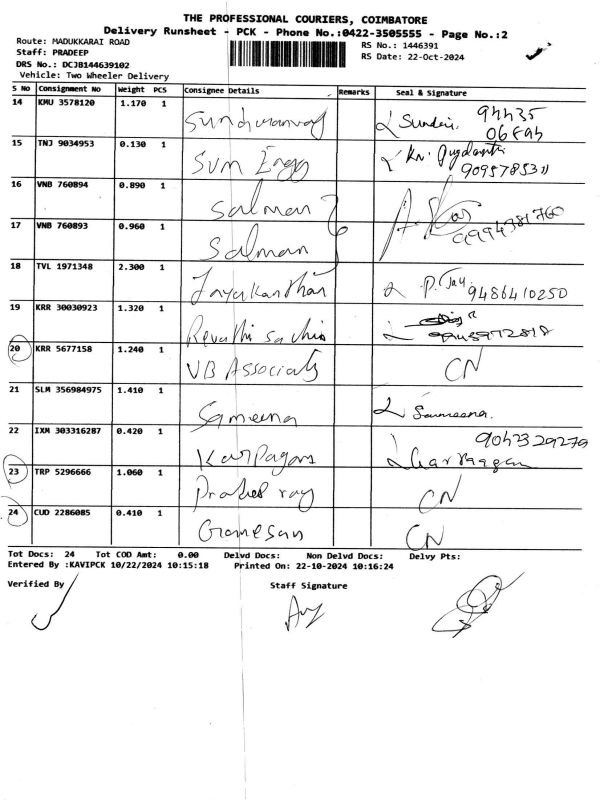 THE PROFESSIONAL COURIERS, COIMBATORE
Delivery Runsheet - PCK - Phone No.:0422-3505555 - Page No.:2
Route: MADUKKARAI ROAD
Staff: PRADEEP
DRS No.: DCJB144639102
Vehicle: Two Wheeler Delivery
RS No.: 1446391
RS Date: 22-Oct-2024
S No Consignment No Weight PCS Consignee Details Remarks Seal & Signature
14 KMU 3578120 1.170 1
15 TNJ 9034953 0.130 1 Sum Engg
16 VNB 760894 0.890 1 Salman
17 VNB 760893 0.960 1 Salman
18 TVL 1971348 2.300 1 Jayakanthan 9486410250
19 KRR 30030923 1.320 1
20 KRR 5677158 1.240 1 VB Associats CN
21 SLM 356984975 1.410 1 Sameena Sameena.
22 IXM 303316287 0.420 1 Karpagam
23 TRP 5296666 1.060 1 CN
24 CUD 2286085 0.410 1 Ganesan CN
Tot Docs: 24 Tot COD Amt: 0.00 Delvd Docs: Non Delvd Docs: Delvy Pts:
Entered By :KAVIPCK 10/22/2024 10:15:18 Printed On: 22-10-2024 10:16:24
Verified By Staff Signature